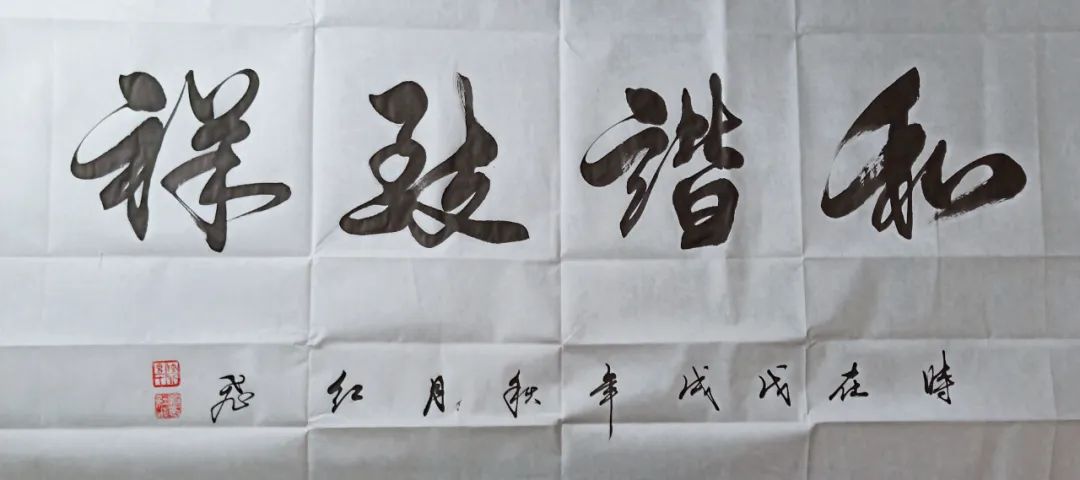 和諧致祥
時在戊戌年秋月红飛